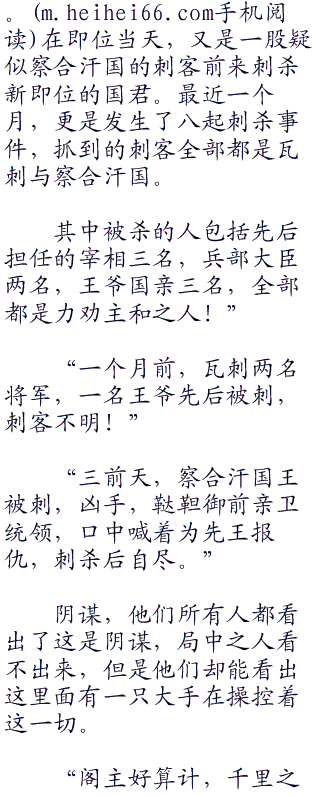 。(m.heihei66.com手机阅
读)在即位当天，又是一股疑
似察合汗国的刺客前来刺杀
新即位的国君。最近一个
月，更是发生了八起刺杀事
件，抓到的刺客全部都是瓦
刺与察合汗国。
其中被杀的人包括先后
担任的宰相三名，兵部大臣
两名，王爷国亲三名，全部
都是力劝主和之人！”
“一个月前，瓦刺两名
将军，一名王爷先后被刺，
刺客不明！”
“三前天，察合汗国王
被刺，凶手，鞑靼御前亲卫
统领，口中喊着为先王报
仇，刺杀后自尽。”
阴谋，他们所有人都看
出了这是阴谋，局中之人看
不出来，但是他们却能看出
这里面有一只大手在操控着
这一切。
“阁主好算计，千里之